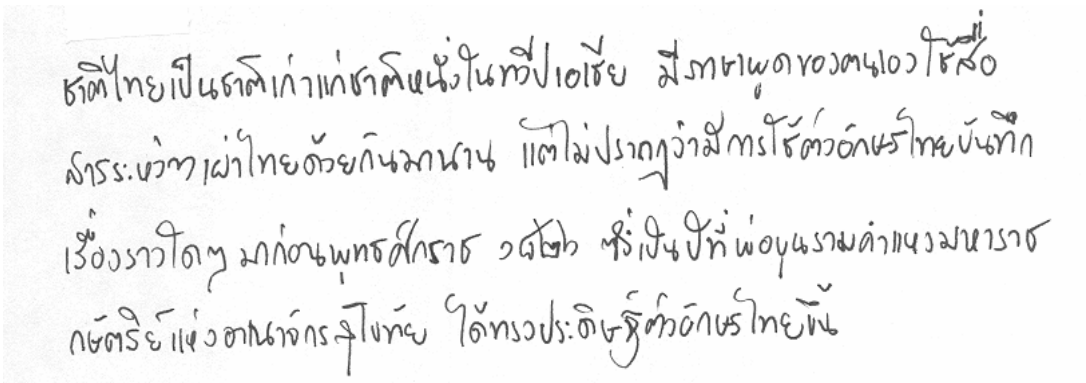 ชาติไทยเป็นชาติเก่าแก่ชาติหนึ่งในทวีปเอเซีย มีภาษาพูดของตนเองใช้สื่อ
สารระหว่างเผ่าไทยด้วยกันมานาน แต่ไม่ปรากฏว่ามีการใช้ตัวอักษรไทยบันทึก
เรื่องราวใดๆ มาก่อนพุทธศักราช ๑๘๒๖ ซึ่งเป็นปีที่พ่อขุนรามคำแหงมหาราช
กษัตริย์แห่งอาณาจักรสุโขทัย ได้ทรงประดิษฐ์ตัวอักษรไทยขึ้น